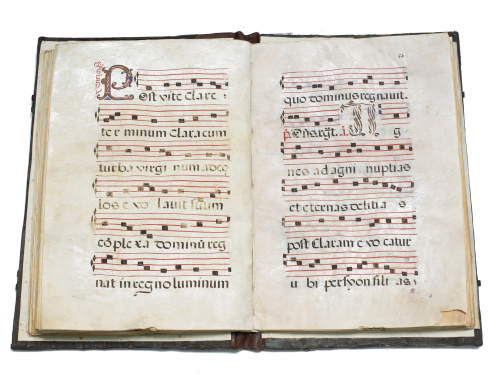 Post vite clare
terminum clara cum
turba virginum a doce
los evolavit suum
cōplexa dominū reg
nat in regno luminum
quo dominus regnavit.
nes ad agni nuptias
et eternas delitias
post Claram evocatur
ubi per sponsilias